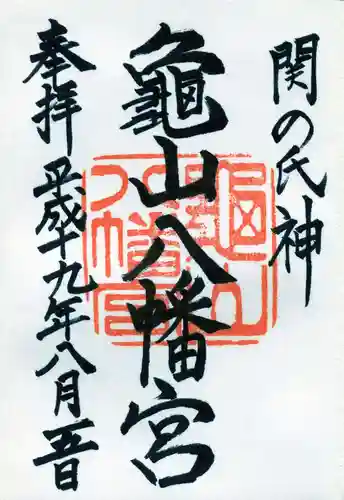 関の氏神
龜山八幡宮
奉拝 平成十九年八月五日
龜山八幡宮